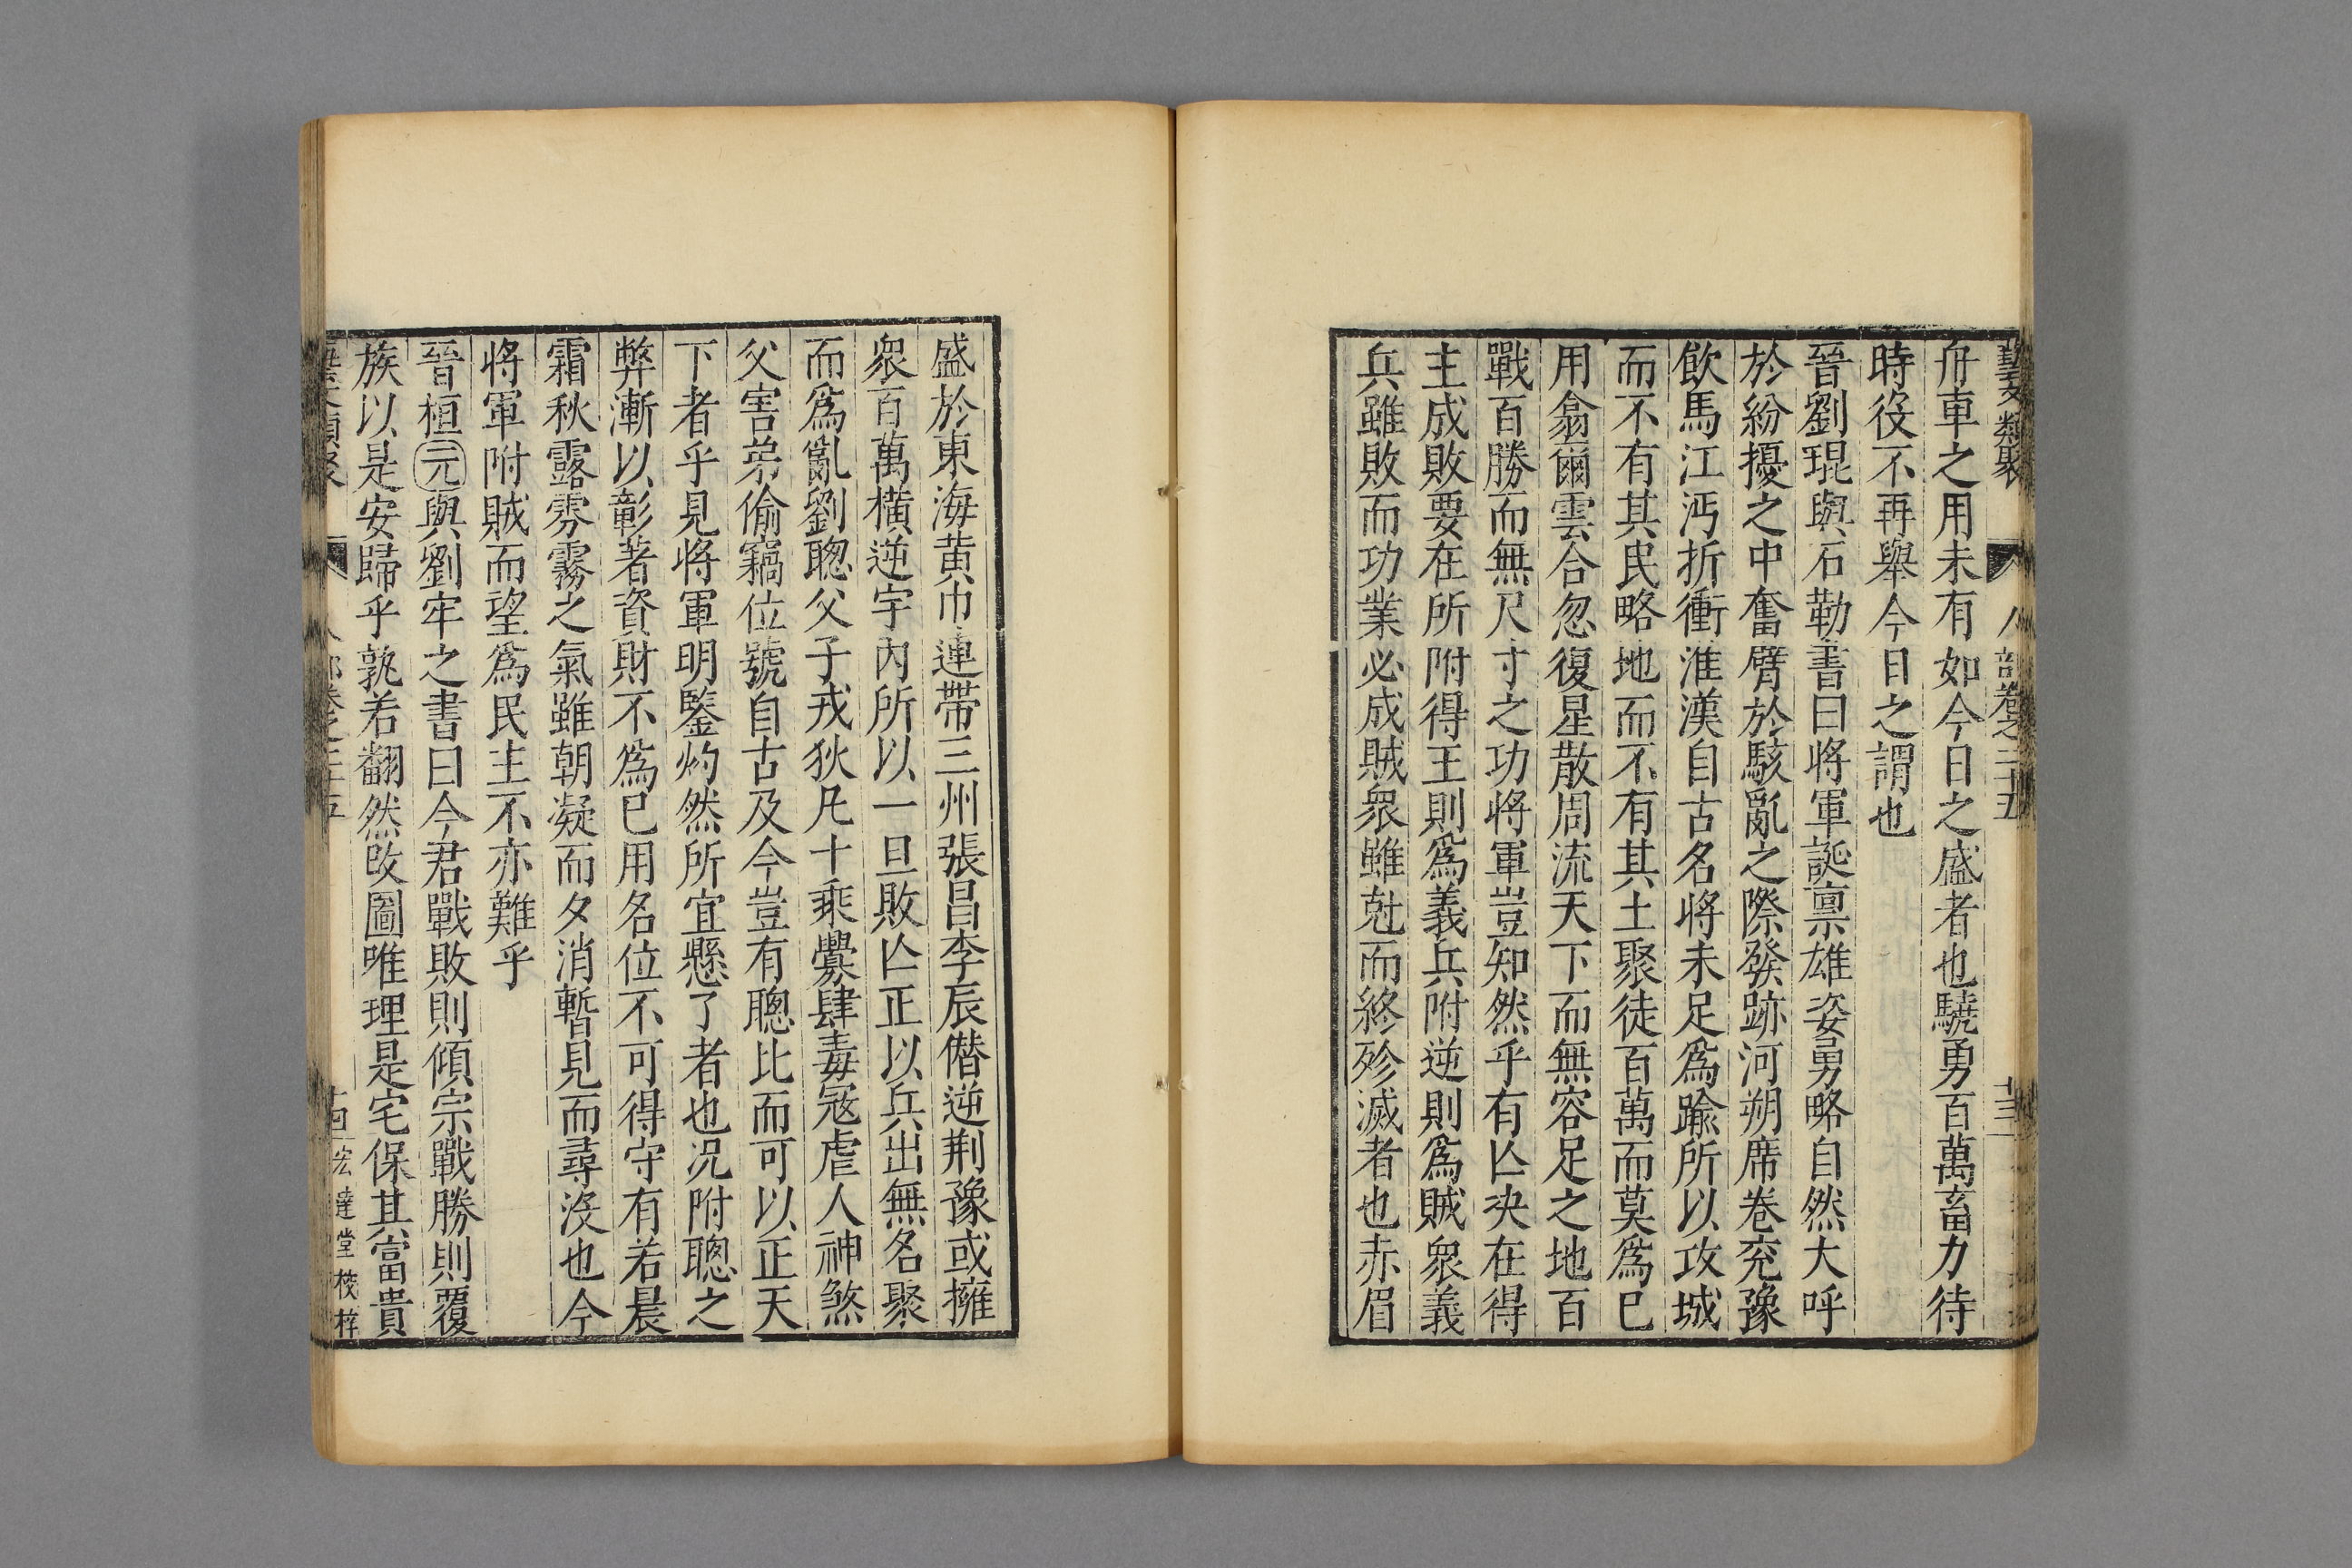 藝文類聚 人部卷之二十五 十三
舟車之用未有如今日之盛者也驍勇百萬畜力待
時役不再舉今日之謂也
晉劉琨與石勒書曰將軍誕禀雄姿勇略自然大呼
於紛擾之中奮臂於駭亂之際發跡河朔席卷兖豫
飲馬江沔折衝淮漢自古名將未足爲踰所以攻城
而不有其民略地而不有其土聚徒百萬而莫爲巳
用翕爾雲合忽復星散周流天下而無容足之地百
戰百勝而無尺寸之功將軍豈知然乎有亾决在得
主成敗要在所附得王則爲義兵附逆則爲賊衆義
兵雖敗而功業必成賊衆雖尅而終殄滅者也赤眉
盛於東海黄巾連帶三州張昌李辰僭逆荆豫或擁
衆百萬横逆宇内所以一旦敗亾正以兵出無名聚
而爲亂劉聰父子戎狄凡十乘釁肆毒冦虐人神煞
父害弟偷竊位號自古及今豈有聰比而可以正天
下者乎見將軍明鑒灼然所宜懸了者也况附聰之
弊漸以彰著資財不爲巳用名位不可得守有若晨
霜秋露雰霧之氣雖朝凝而夕消暫見而尋没也今
將軍附賊而望爲民主不亦難乎
晉桓元與劉牢之書曰今君戰敗則傾宗戰勝則覆
族以是安歸乎孰若翻然改圖唯理是宅保其富貴
藝文類聚 人部卷之二十五 十四 宏達堂校梓